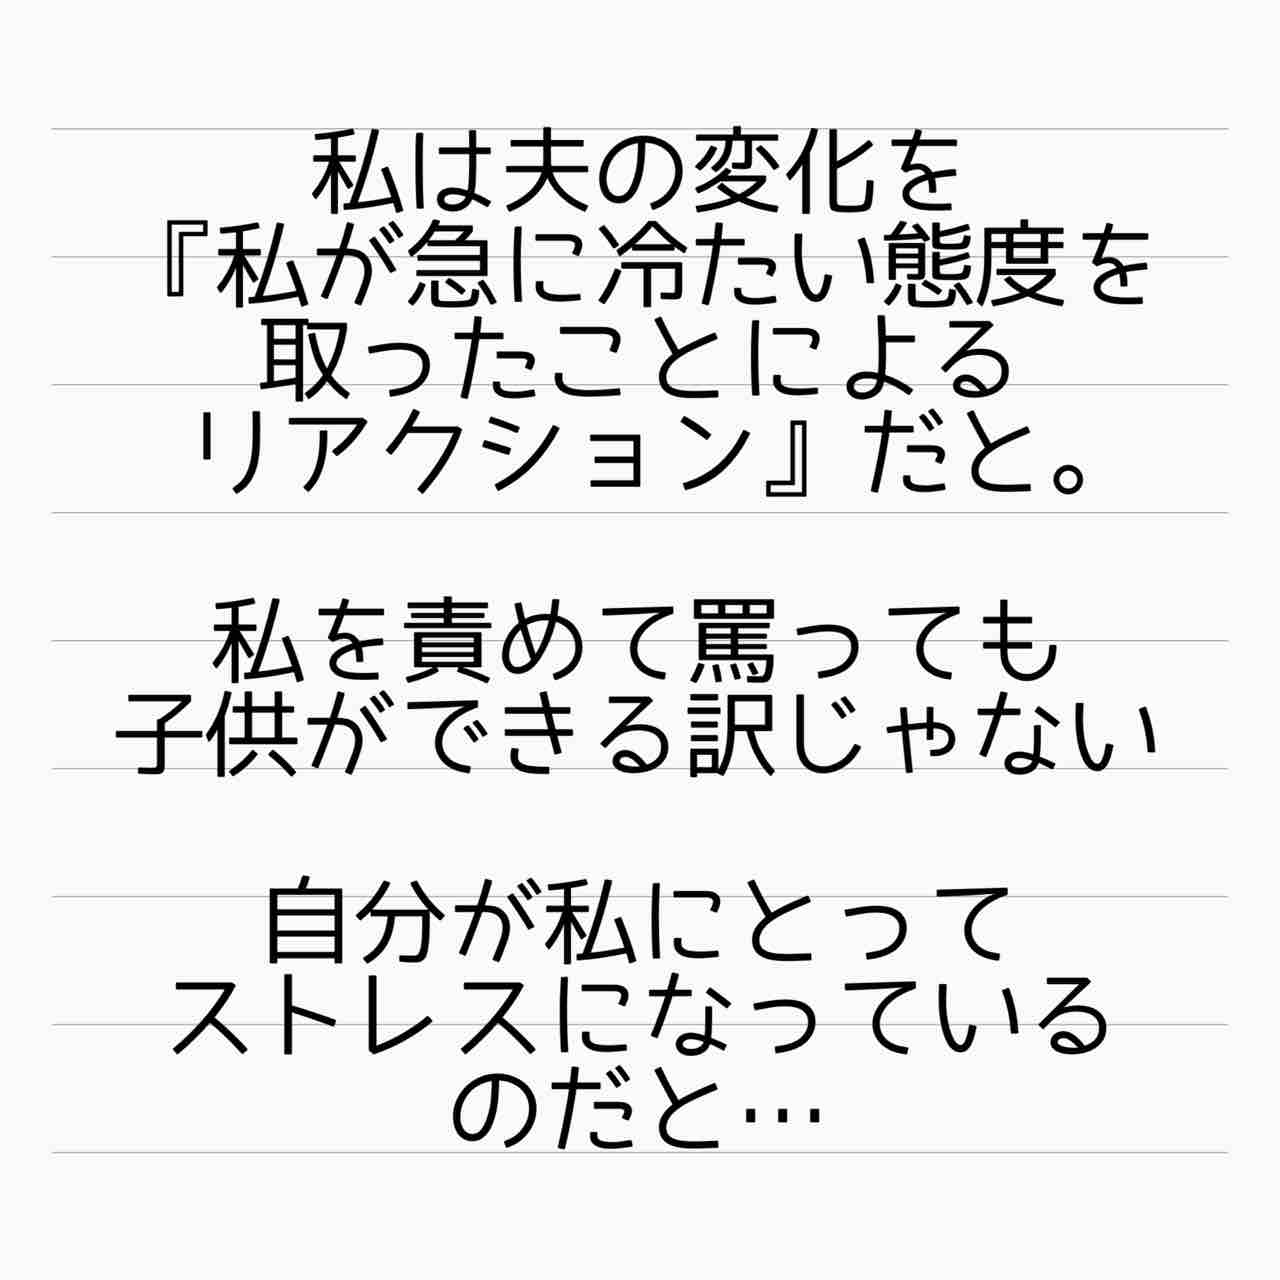 私は夫の変化を
『私が急に冷たい態度を
取ったことによる
リアクション』だと。
私を責めて罵っても
子供ができる訳じゃない
自分が私にとって
ストレスになっている
のだと…